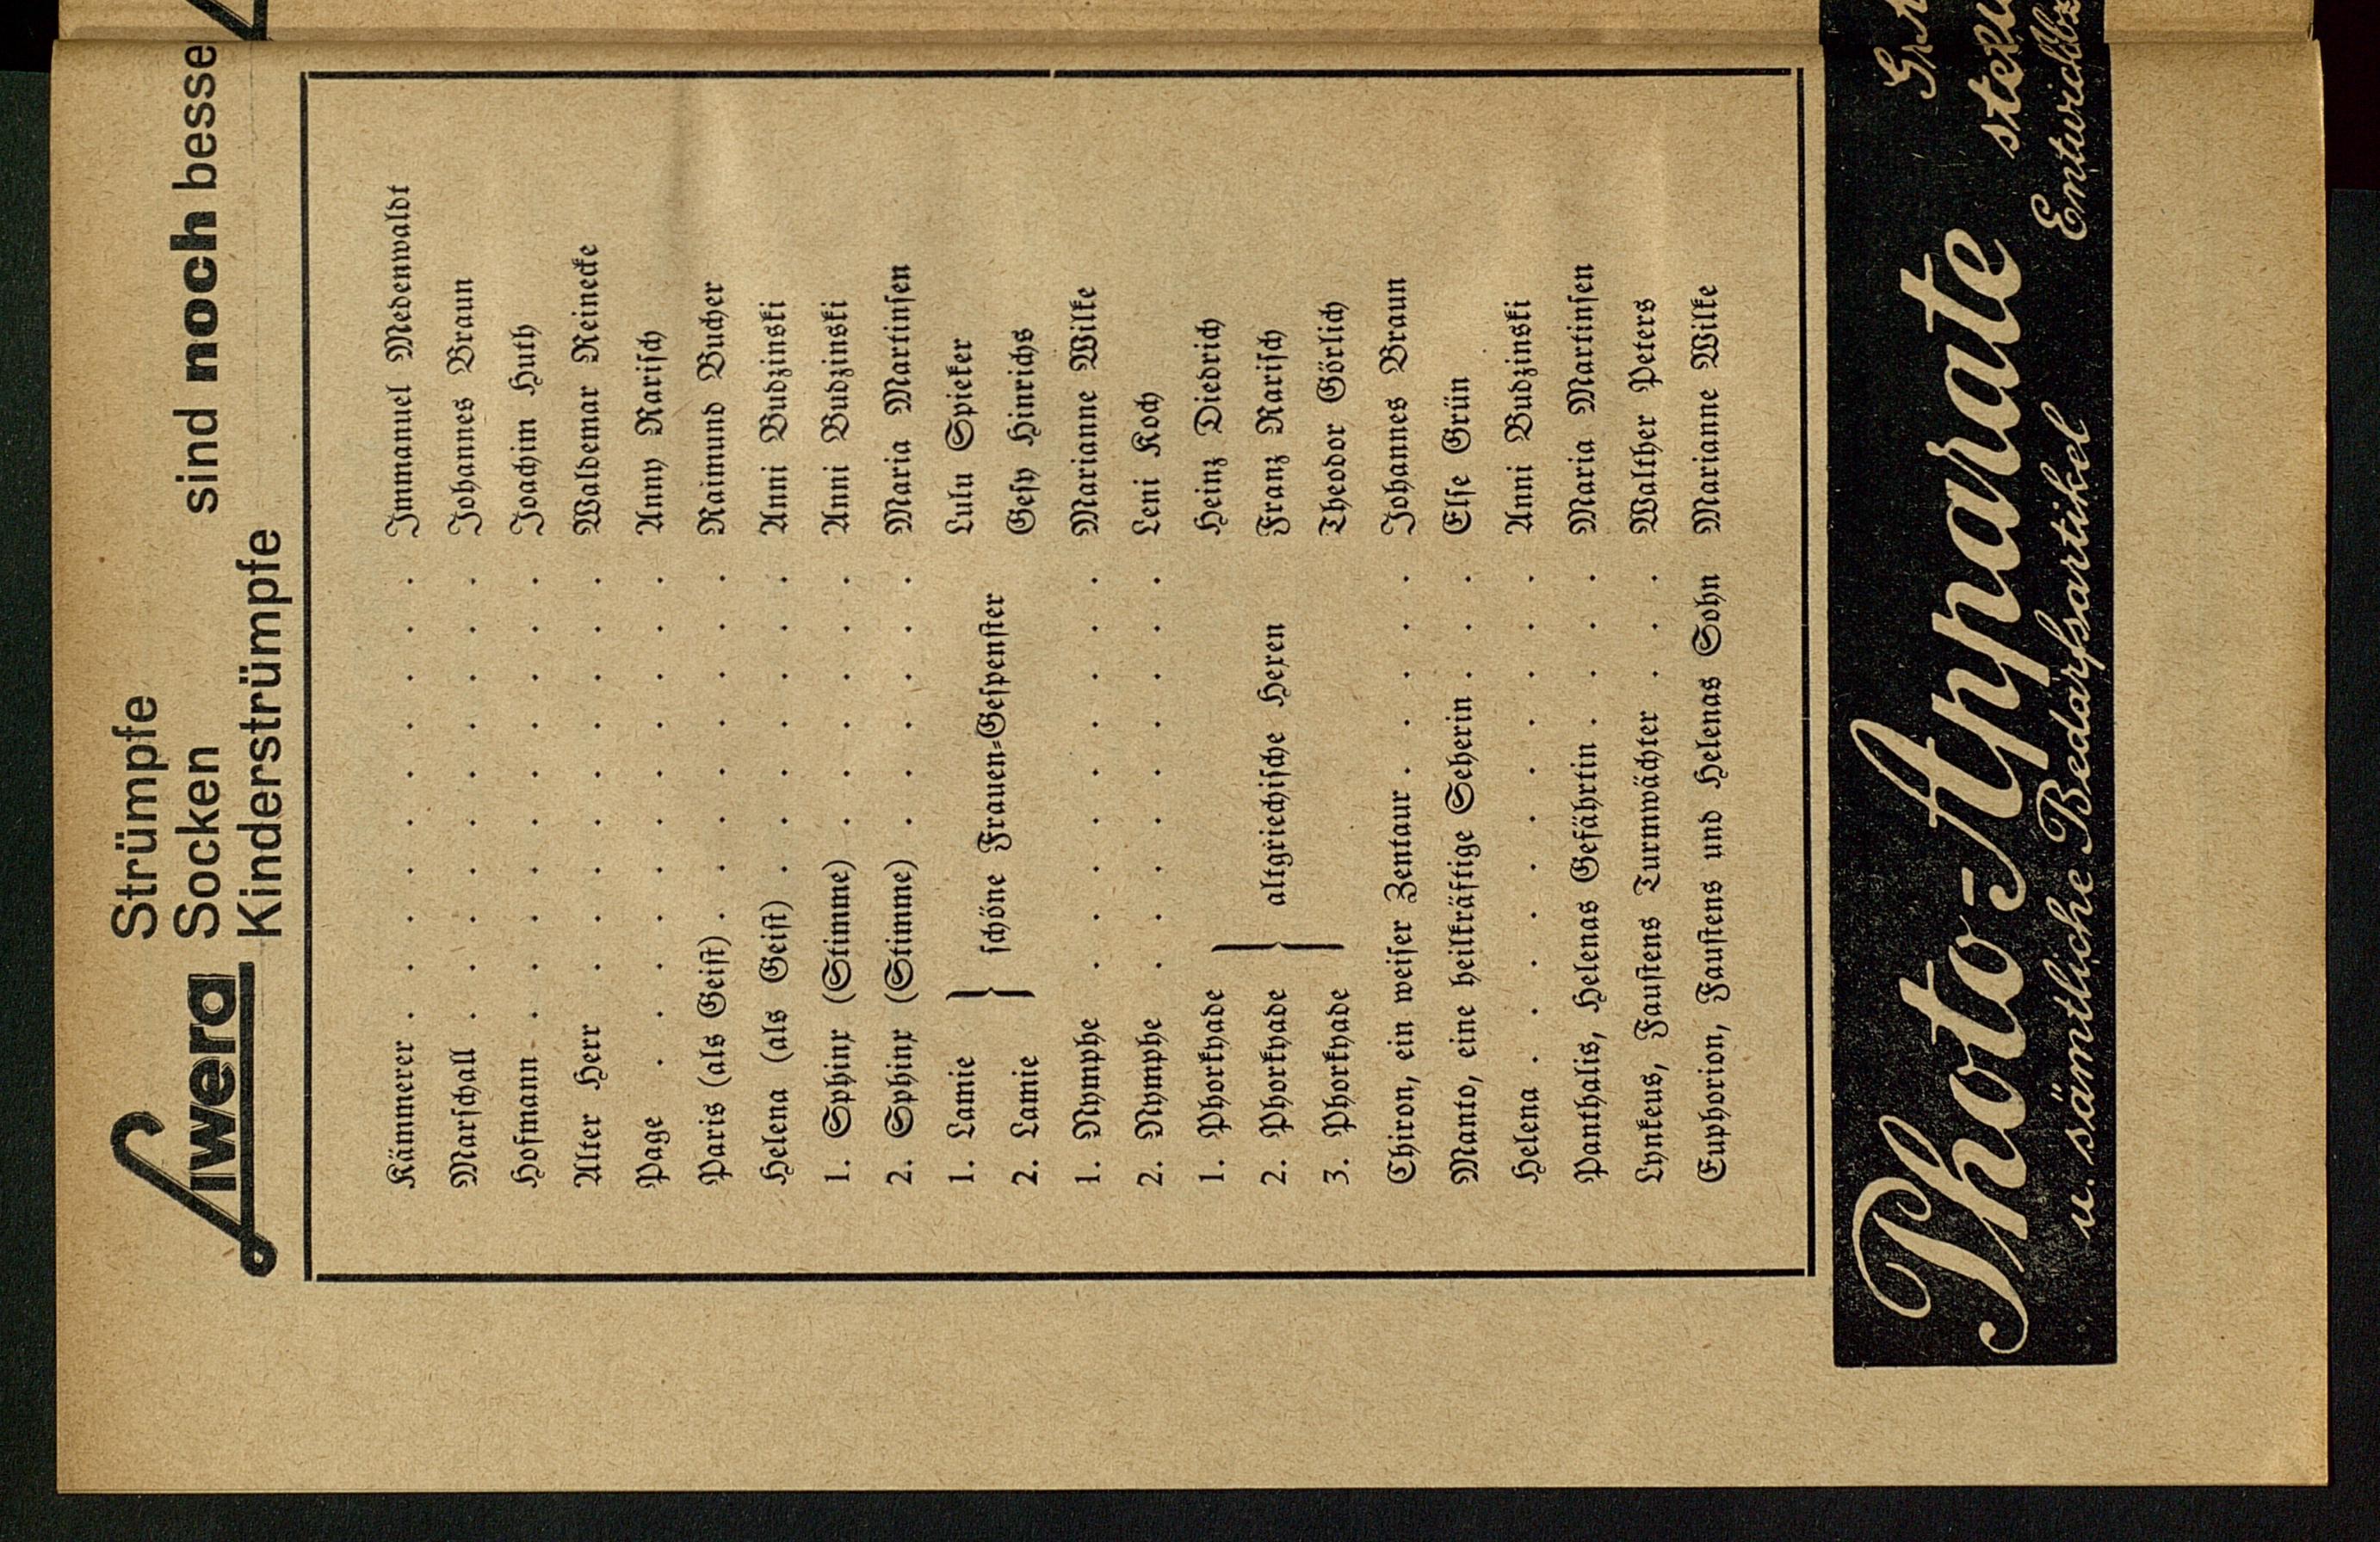 Liwera
Strümpfe
Socken
Kinderstrümpfe
sind noch besse
Kämmerer . . . . . . . . . . Immanuel Medenwaldt
Marschall . . . . . . . . . . Johannes Braun
Hofmann . . . . . . . . . . Joachim Huth
Alter Herr . . . . . . . . . Waldemar Reinecke
Page . . . . . . . . . . . Anny Rarisch
Paris (als Geist) . . . . . . . . Raimund Bucher
Helena (als Geist) . . . . . . . Anni Budzinski
1. Sphinx (Stimme) . . . . . . Anni Budzinski
2. Sphinx (Stimme) . . . . . . Maria Martinsen
1. Lamie } schöne Frauen-Gespenster Lulu Spieker
2. Lamie Gesy Hinrichs
1. Nymphe . . . . . . . . . Marianne Wilke
2. Nymphe . . . . . . . . . Leni Koch
1. Phorkyade Heinz Diedrich
2. Phorkyade } altgriechische Hexen Franz Rarisch
3. Phorkyade Theodor Görlich
Chiron, ein weiser Zentaur . . . . . Johannes Braun
Manto, eine heilkräftige Seherin . . . Else Grün
Helena . . . . . . . . . . . Anni Budzinski
Panthalis, Helenas Gefährtin . . . . Maria Martinsen
Lynkeus, Faustens Turmwächter . . . Walther Peters
Euphorion, Faustens und Helenas Sohn Marianne Wilke
Photo-Apparate
u. sämtliche Bedarfsartikel